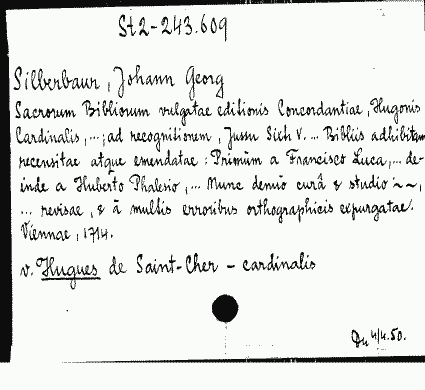 St2-243.609
Silberbaur, Johann Georg
Sacrorum Bibliorum vulgatae editionis Concordantiae, Hugonis
Cardinalis, ...; ad recognitionem, Jussu Sixti V. ... Bibliis adhibitam
recensitae atque emendatae: Primùm a Francisco Luca, ... de-
inde a Huberto Phalesio, ... Nunc denuò curâ & studio ~~,
... revisae, & ā multis erroribus orthographicis expurgatae.
Viennae, 1714.
v. Hugues de Saint-Cher - cardinalis
Du 4/4.50.